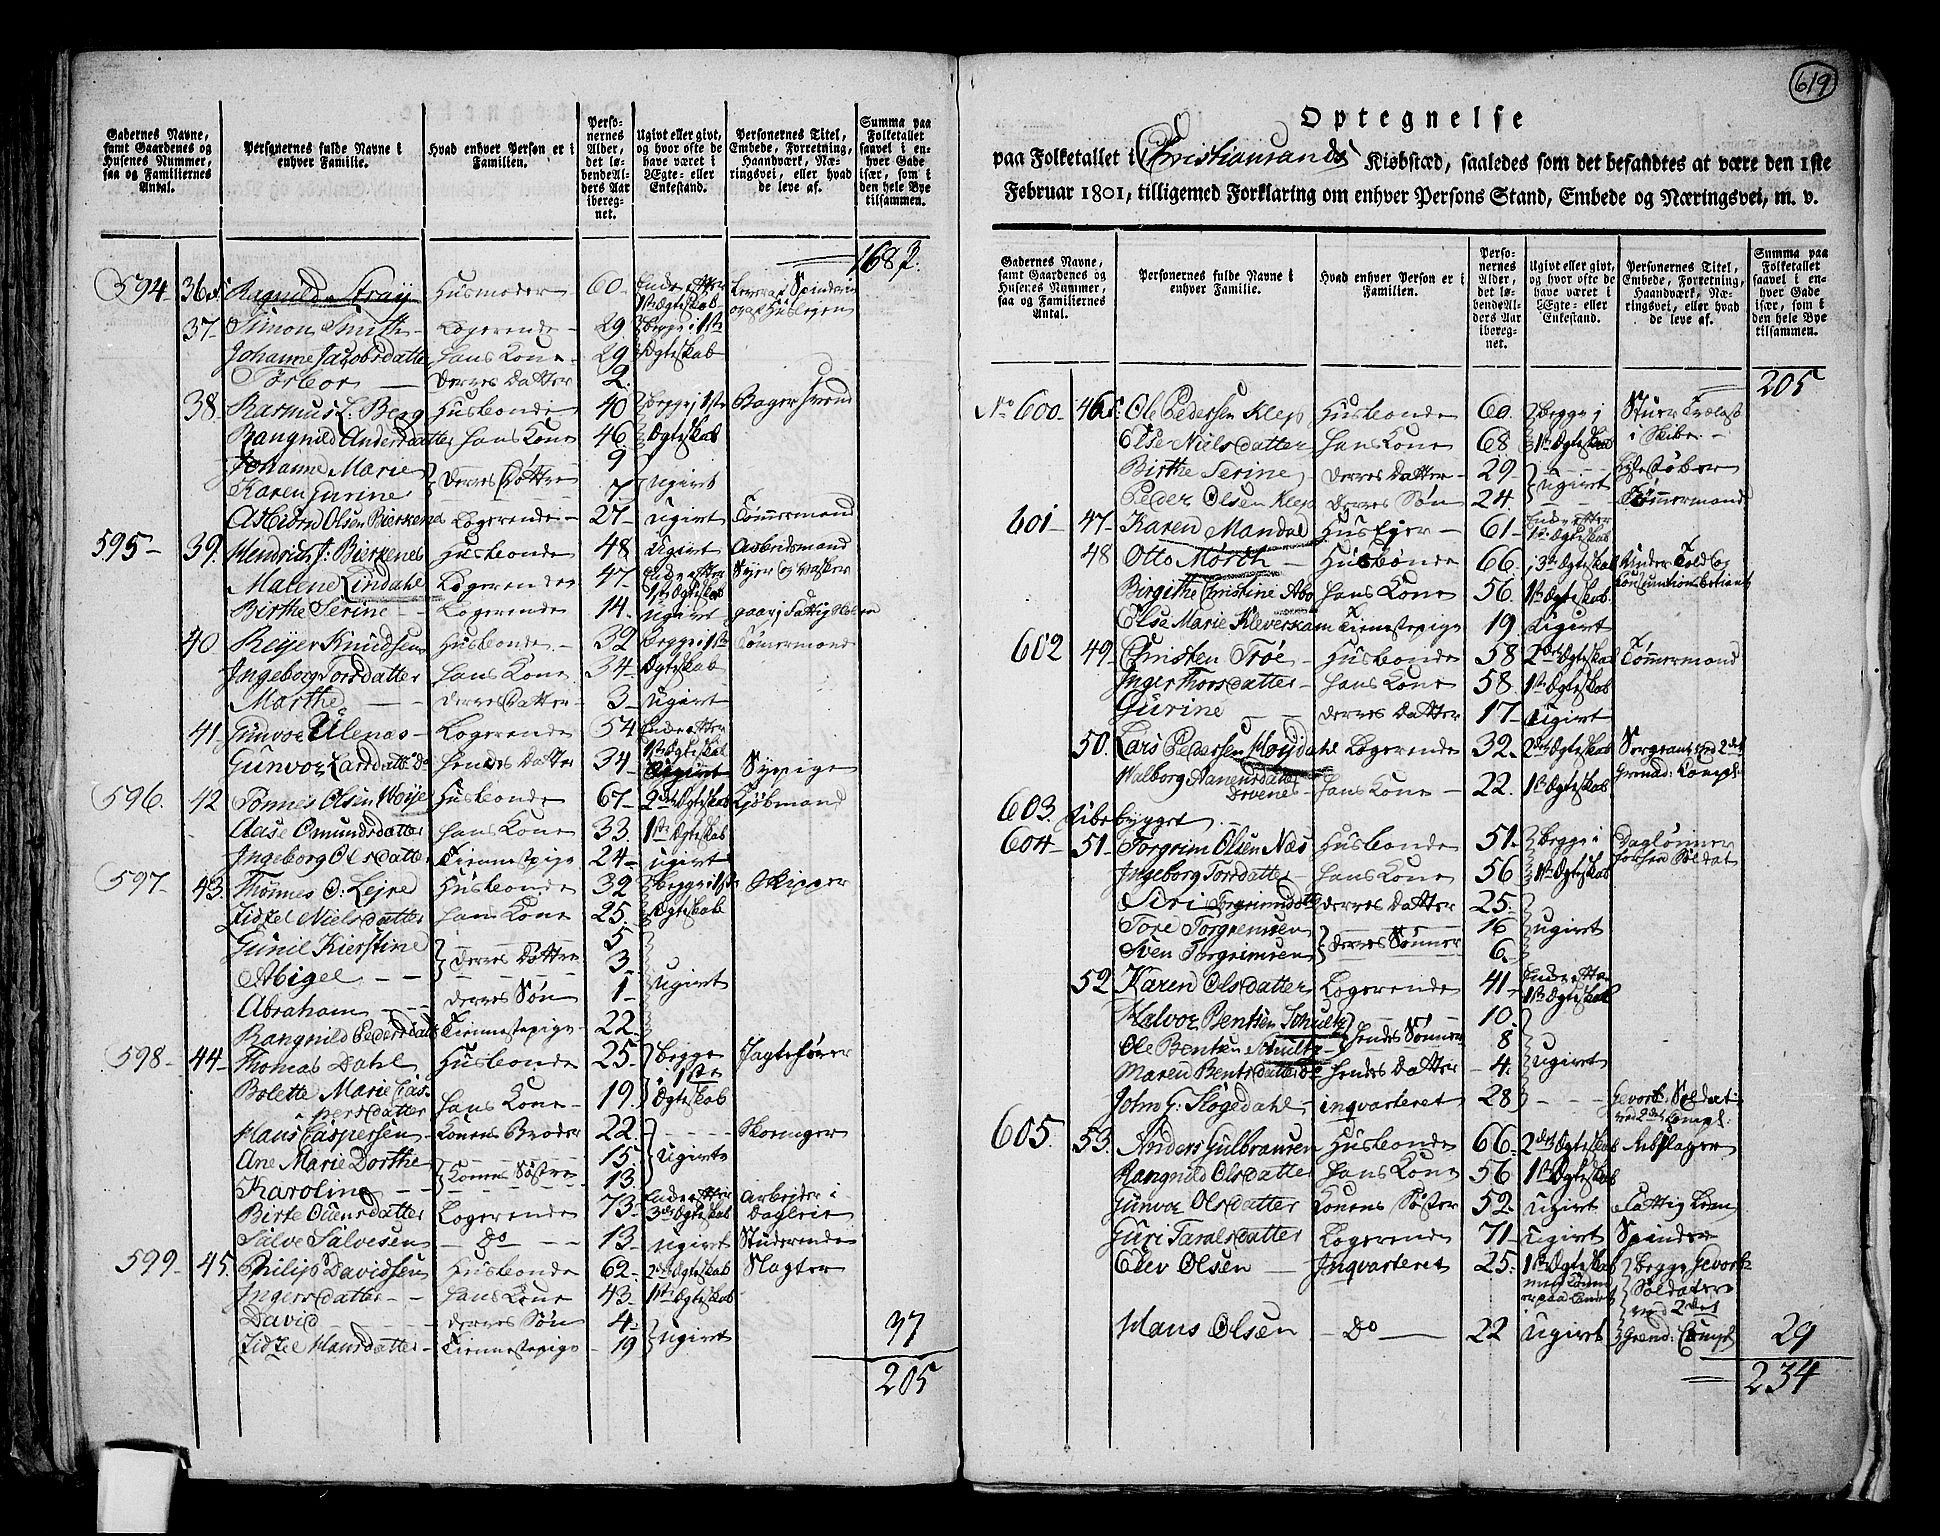 Gadernes Navne, samt Gaardenes og Husenes Nummer, saa og Familiernes Antal.
Personernes fulde Navne i enhver Familie.
Hvad enhver Person er i Familien.
Personernes Alder, det løbende Alders Aar iberegnet.
Ugivt eller givt, og hvor ofte de have været i Ægte- eller Enkestand.
Personernes Titel, Embede, Forretning, Haandværk, Næringsvei, eller hvad de leve af.
Summa paa Folketallet saavel i enhver Gade især, som i den hele Bye tilsammen.
168
594 36 Ragnilde Straÿ Husmoder 60 Enke efter 1ste Ægteskab
37 Simon Smith Logerende 29 begge i 1ste
Johanne Jacobsdatter hans Kone 29 Ægteskab
Torbor deres Datter 2
38 Rasmus L. Berg Husbonde 40 begge i 1ste Bager Svend
Rangnild Andersdatter hans Kone 46 Ægteskab
Johanne Marie deres Døttre 9
Karen Gurine 7 ugivt
Asbiörn Olsen Bierkenes Logerende 27 ugivt Tömmermand
595 39 Hendrich J: Bierkenes Husbonde 48 Ugivt Arbeidsmand
Malene Lindahl Logerende 47 Enke efter 1ste Ægteskab Syer og vasker
Birthe Serine Logerende 14 ugivt
40 Reyer Knudsen Husbonde 32 begge i 1ste Tömmermand
Ingeborg Torsdatter hans Kone 34 Ægteskab
Marthe deres Datter 3 ugivt
41 Gunvor Ulenas Logerende 54 Enke efter 1ste Ægteskab
Gunvor Larsdatter do hendes Datter 34 Ugivt Sypige
596 42 Tönnes Olsen Woije Husbonde 67 2det Ægteskab Kjöbmand
Aase Omundsdatter hans Kone 33 1ste Ægteskab
Ingeborg Olsdatter Tienestepige 24 ugivt
597 43 Thönnes O: Lejre Husbonde 32 begge i 1ste Skipper
Zidzel Nielsdatter hans Kone 25 Ægteskab
Gunil Kierstine deres Döttre 5
Abigel 3 ugivt
Abraham deres Sön 1
Rangnild Pedersdatt Tienestepige 22
598 44 Thomas Dahl Husbonde 25 begge i 1ste
Bolette Marie Caspersdatter hans Kone 19 Ægteskab
Hans Caspersen Konens Broder 22
Ane Marie Dorthe Konens Söstre 15 ugivte
Karoline 13
Birte Olsensdatter Logerende 73 Enke efter 3de Ægteskab arbejder i Dagleie
Salve Salvesen do 13 ugivt Studerende
599 45 Philip Davidsen Husbonde 62 2det Ægteskab Slagter
Ingersdatter hans Kone 43 1ste Ægteskab
David deres Sön 4
Zidzel Hansdatter Tienestepige 19 ugivt
37
205
619
Optegnelse
paa Folketallet i Christiansands Kiøbstæd, saaledes som det befandtes at være den 1ste
Februar 1801, tilligemed Forklaring om enhver Persons Stand, Embede og Næringsvei, m. v.
Gadernes Navne, samt Gaardenes og Husenes Nummer, saa og Familiernes Antal.
Personernes fulde Navne i enhver Familie.
Hvad enhver Person er i Familien.
Personernes Alder, det løbende Alders Aar iberegnet.
Ugivt eller givt, og hvor ofte de have været i Ægte- eller Enkestand.
Personernes Titel, Embede, Forretning, Haandværk, Næringsvei, eller hvad de leve af.
Summa paa Folketallet saavel i enhver Gade især, som i den hele Bye tilsammen.
205
No 600 46 Ole Pedersen Klep Husbonde 60 begge i
Else Nielsdatter hans Kone 68 1ste Ægteskab
Birthe Serine deres Datter 29
Peder Olsen Klep deres Sön 24 ugivt Tömmermand
601 47 Karen Mandal Hus Ejer 61 Enke efter 1ste Ægteskab
48 Otto Mörch Husbonde 66 3de Ægteskab Under Told og Consumtionsbetient
Birgithe Christine Abo hans Kone 56 1ste Ægteskab
Else Marie Kleverkam Tienestepige 19 Ugivt
602 49 Christen Tröe Husbonde 58 2det Ægteskab Tömmermand
Inger Thorsdatter hans Kone 58 1ste Ægteskab
Gurine deres Datter 17 Ugivt
50 Lars Pedersen Höydahl Logerende 32 2det Ægteskab Sergeant ved 2det Grenad: Compl
Walborg Aanensdatter Drvenes hans Kone 22 1ste Ægteskab
603 Ubebygget
604 51 Torgrim Olsen Næs Husbonde 51 begge i Daglönner
Ingeborg Torsdatter hans Kone 56 1ste Ægteskab
Siri Torgrimsd deres Datter 25
Tore Torgremsen deres Sönner 16 ugivt
Sven Torgrimsen 6
52 Karen Olsdatter Logerende 41 Enke efter 1ste Ægteskab
Halvor Bentsen Schultz hendes Sönner 10
Ole Bentsen Schultz 8 ugivt
Maren Bentsdatter do hendes Datter 4
John G. Skogedahl inqvarteret 28 Gevorb. Soldat ved 2det Compl.
605 53 Anders Gulbransen Husbonde 66 2det Ægteskab
Rangnild Olsdatter hans Kone 56 1ste Ægteskab
Gunvor Olsdatter Konens Söster 52 Ugivt Fattig Lem
Guri Taralsdatter Logerende 71 Ugivt Spinder
Elev Olsen Inqvarteret 25 1ste Ægteskab begge Gevorb: Soldater ved 2det
Hans Olsen do 22 ugivt Grend: Compl
29
234